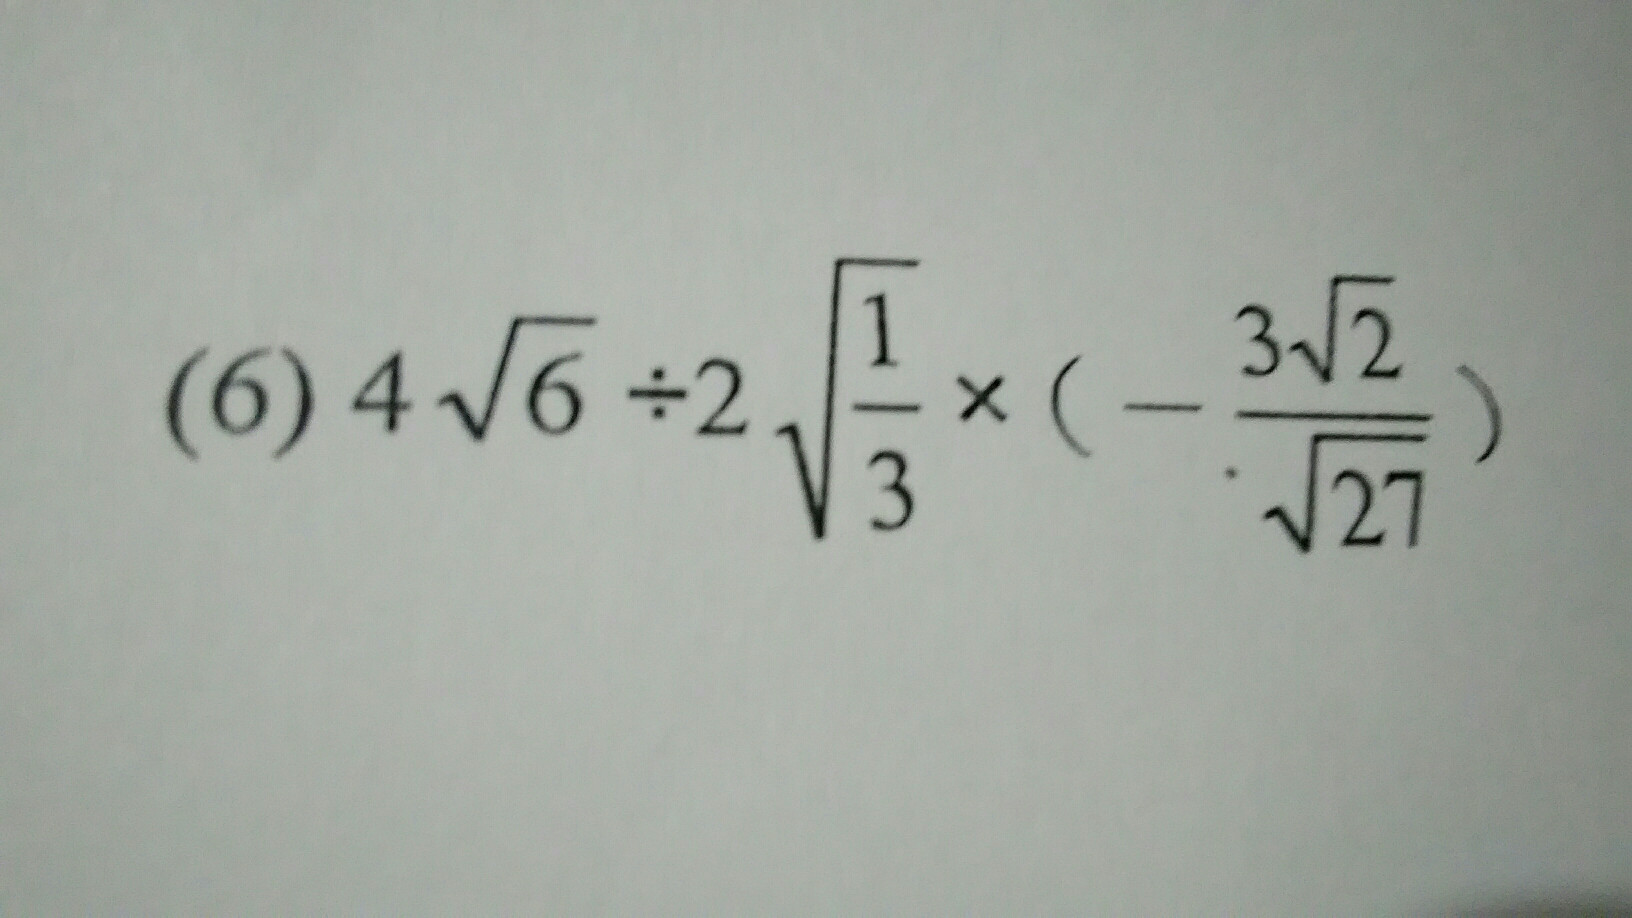 (6) 4√6 ÷2√(1/3) × (−3√2/√27)